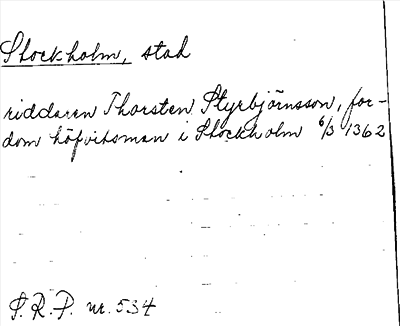 Stockholm, stad
riddaren Thorsten Styrbjörnsson, for-
dom höfvitsman i Stockholm 6/3 1362
S.R.P. nr. 534